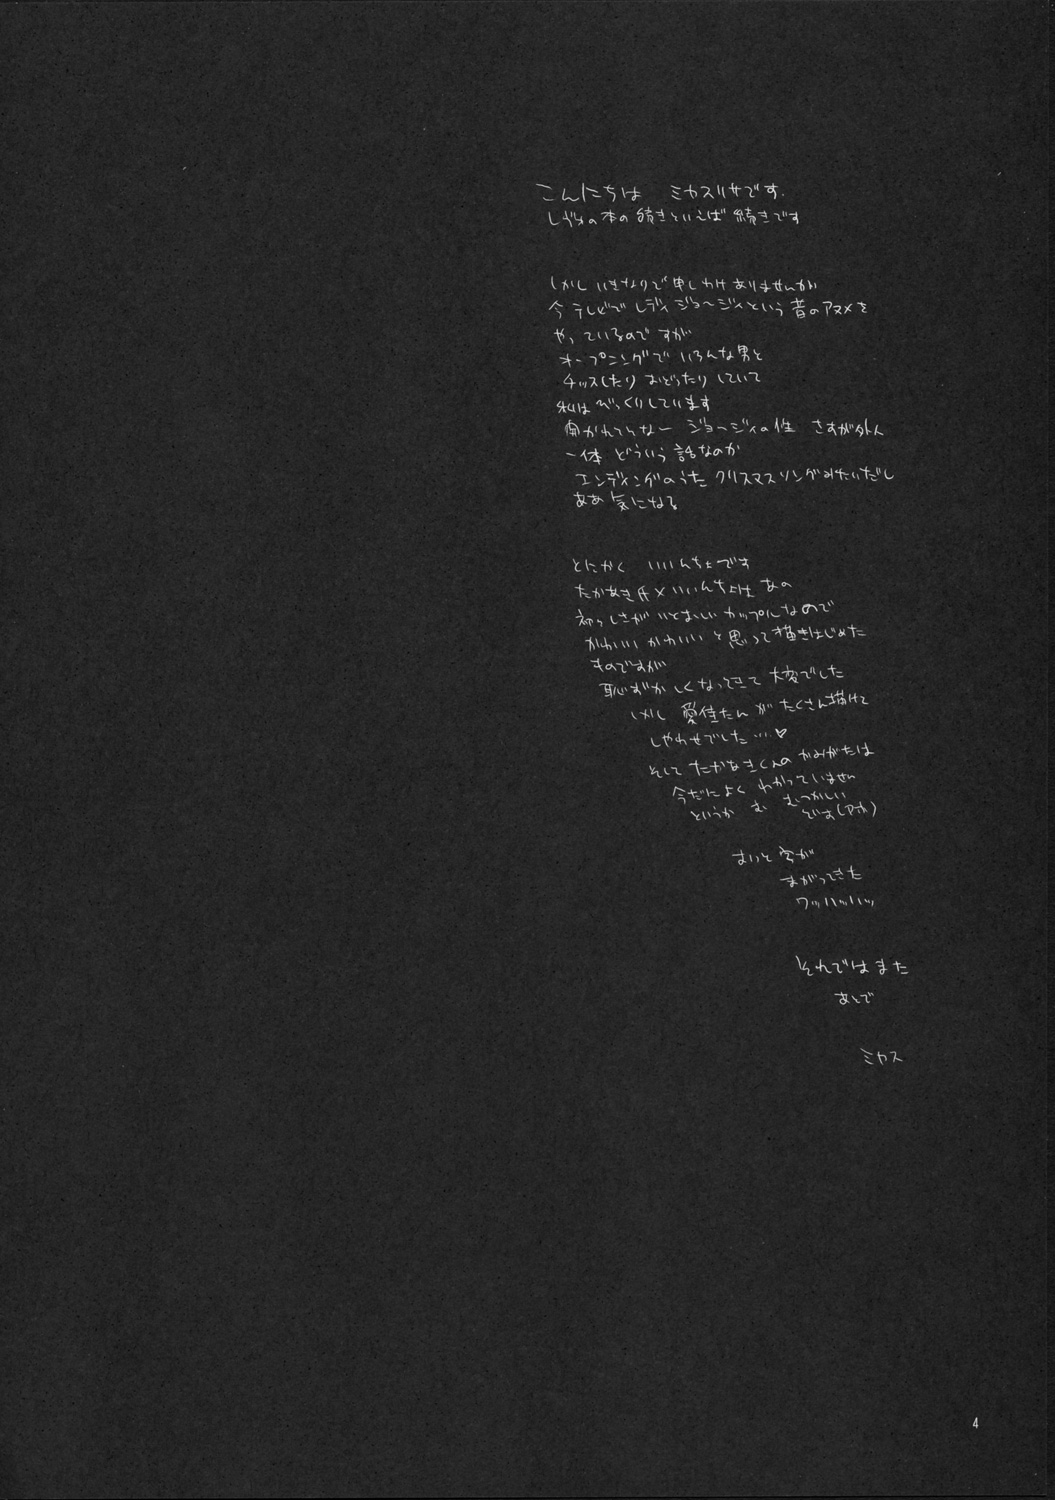 こんにちは ミカスリサです。
の本の続きといえば 続きです
しかし いきなりで 申しわけ ありませんが
今 テレビで レディ ジョージィという 昔のアニメを
やっているのですが
オープニングで いろんな男と
チッスしたり おどったりしていて
私は びっくりしています
ジョージィの性 さすが外人
一体 どういう 話なのか
エンディングのうた クリスマスソングみたいだし
ああ 気になる
とにかく いいんちょです
たかあき氏×いいんちょは あの
初々しさが いとおしい カップルなので
かわいい かわいい と 思って 描きはじめた
ものですが
恥ずかしくなってきて 大変でした
しかし 愛佳たん が たくさん描けて
しあわせでした…♡
そして たかあきくんの かみがたは
今だによく わかっていません
というか む むつかしい
です(アホ)
字が
まがってきた
ワッハッハッ
それでは また
あとで
ミカス
4